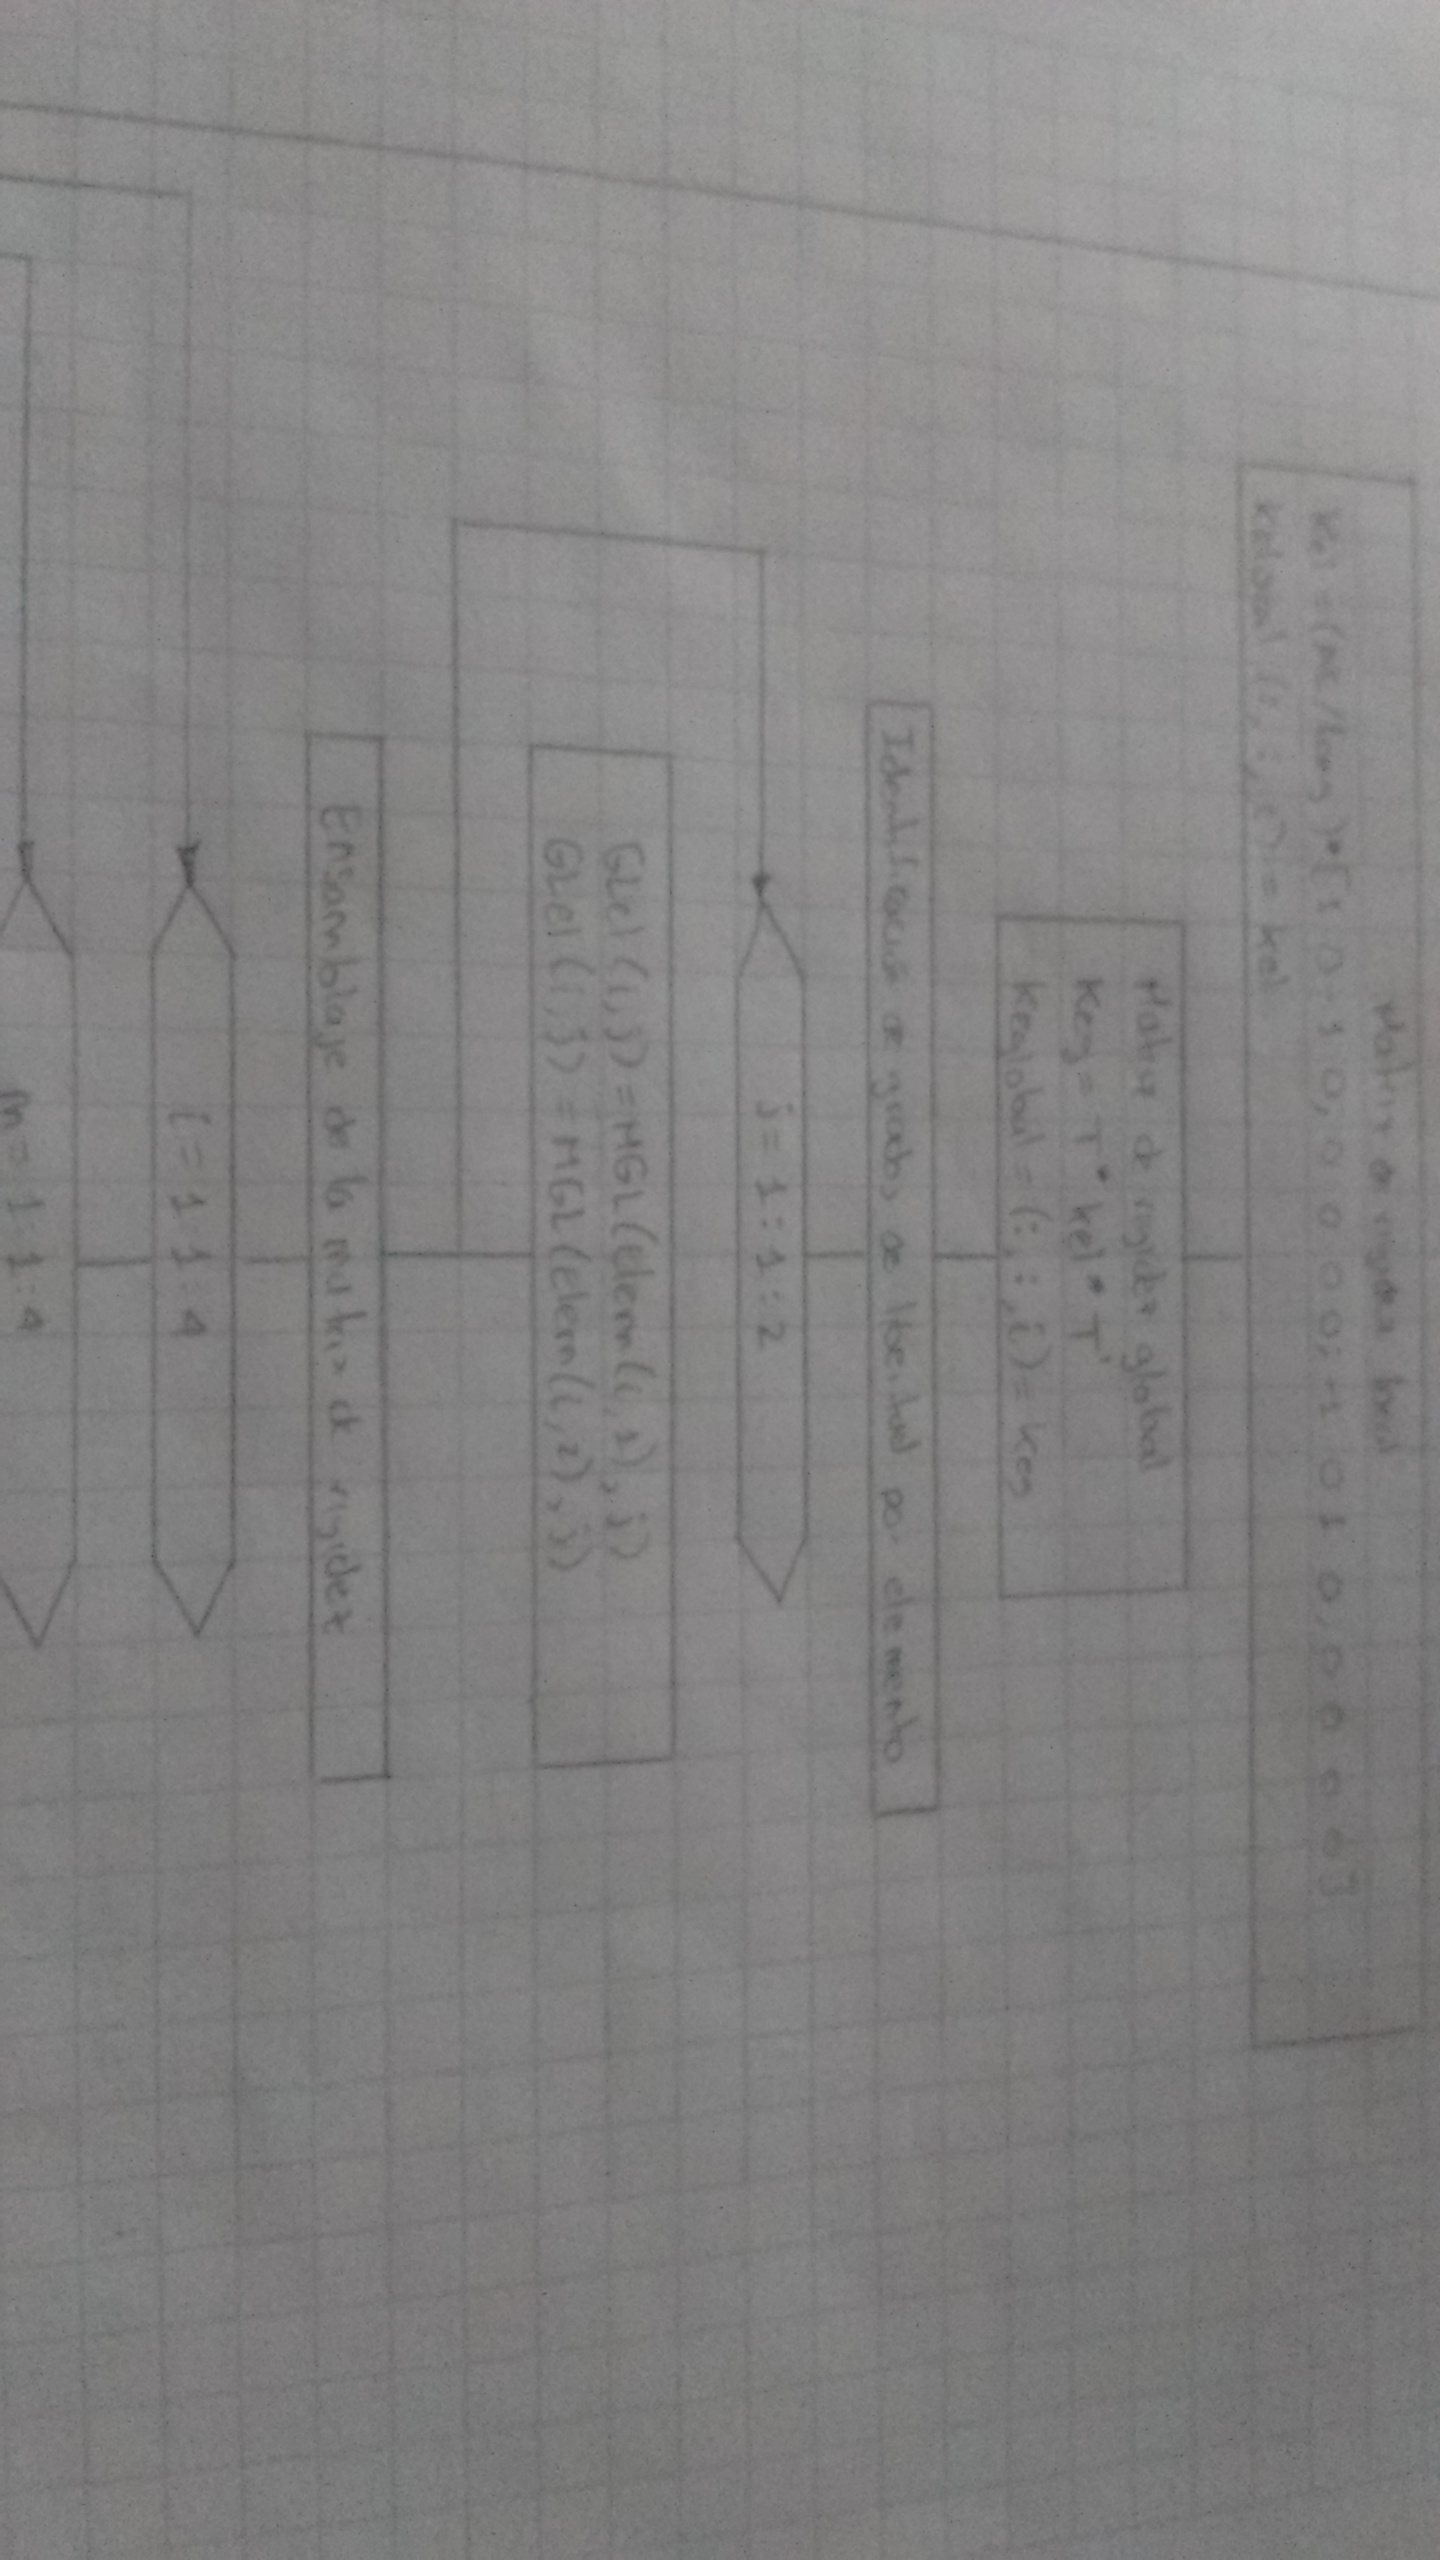 Matriz de rigidez local
Kel = (AE/Long)*[1 0 -1 0; 0 0 0 0; -1 0 1 0; 0 0 0 0]
Kelocal (:,:,i) = kel
Matriz de rigidez global
Keg = T * kel * T'
Keglobal = (:,:,i) = keg
Identificacion de grados de libertad por elemento
j = 1:1:2
GLel (i,j) = MGL (elem(i,1),j)
GLel (i,j) = MGL (elem(i,2),j)
Ensamblaje de la matriz de rigidez
l = 1:1:4
m = 1:1:4